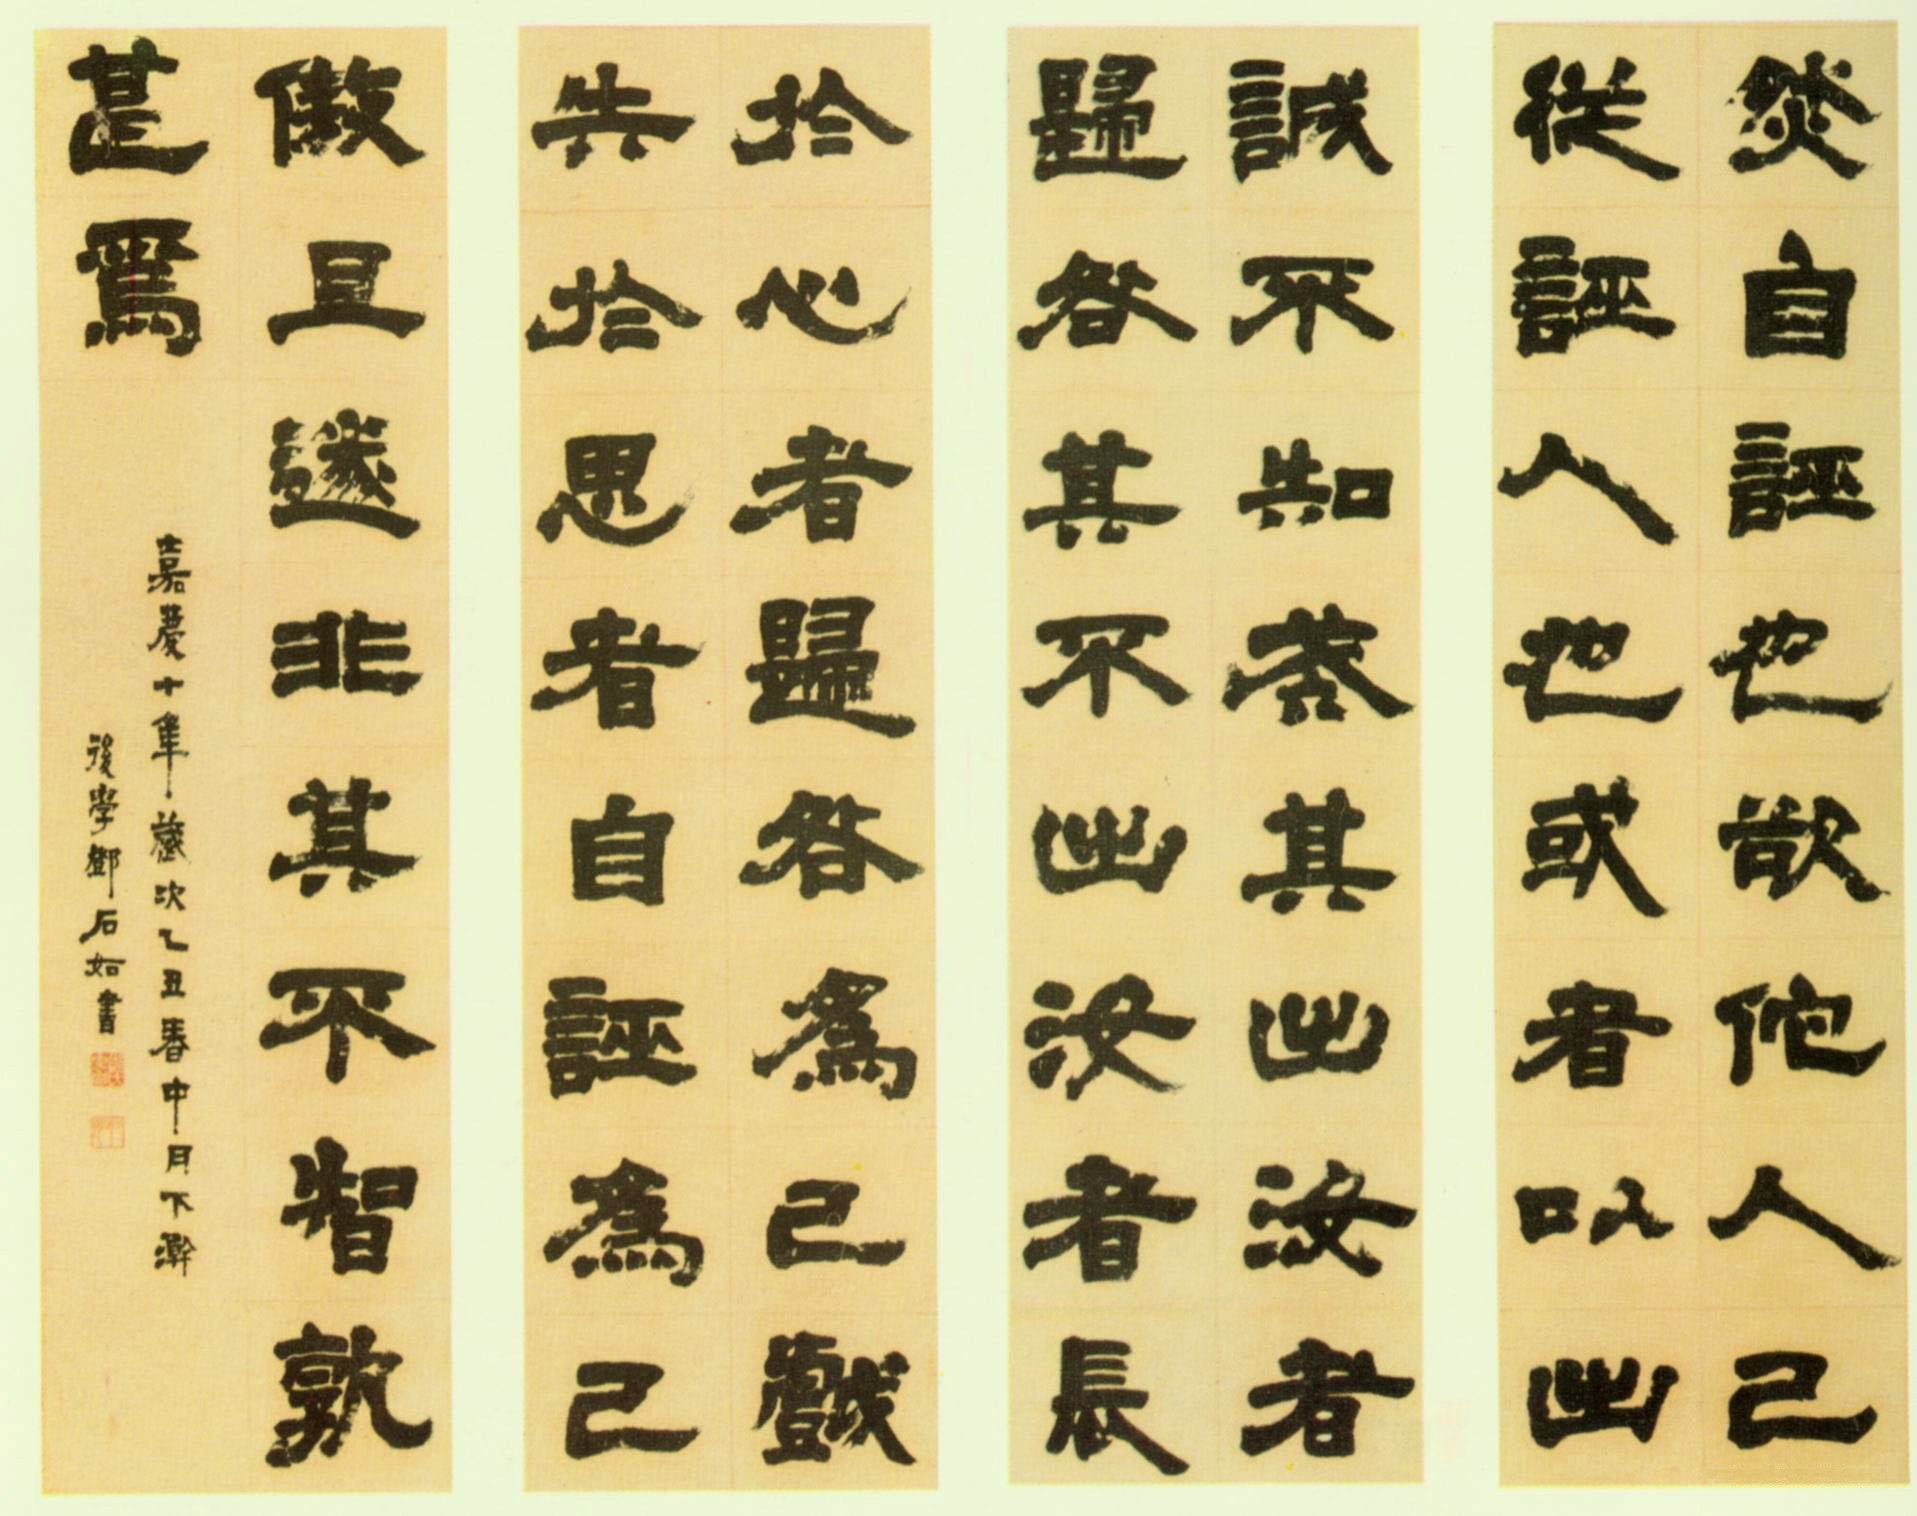 然自誣也欲佗人己
從誣人也或者以出
誠不知戒其出汝者
歸咎其不出汝者長
於心者歸咎為己戲
失於思者自誣為己
傲且遂非其不智孰
甚焉
嘉慶十年歲次乙丑春中月下澣
後學鄧石如書